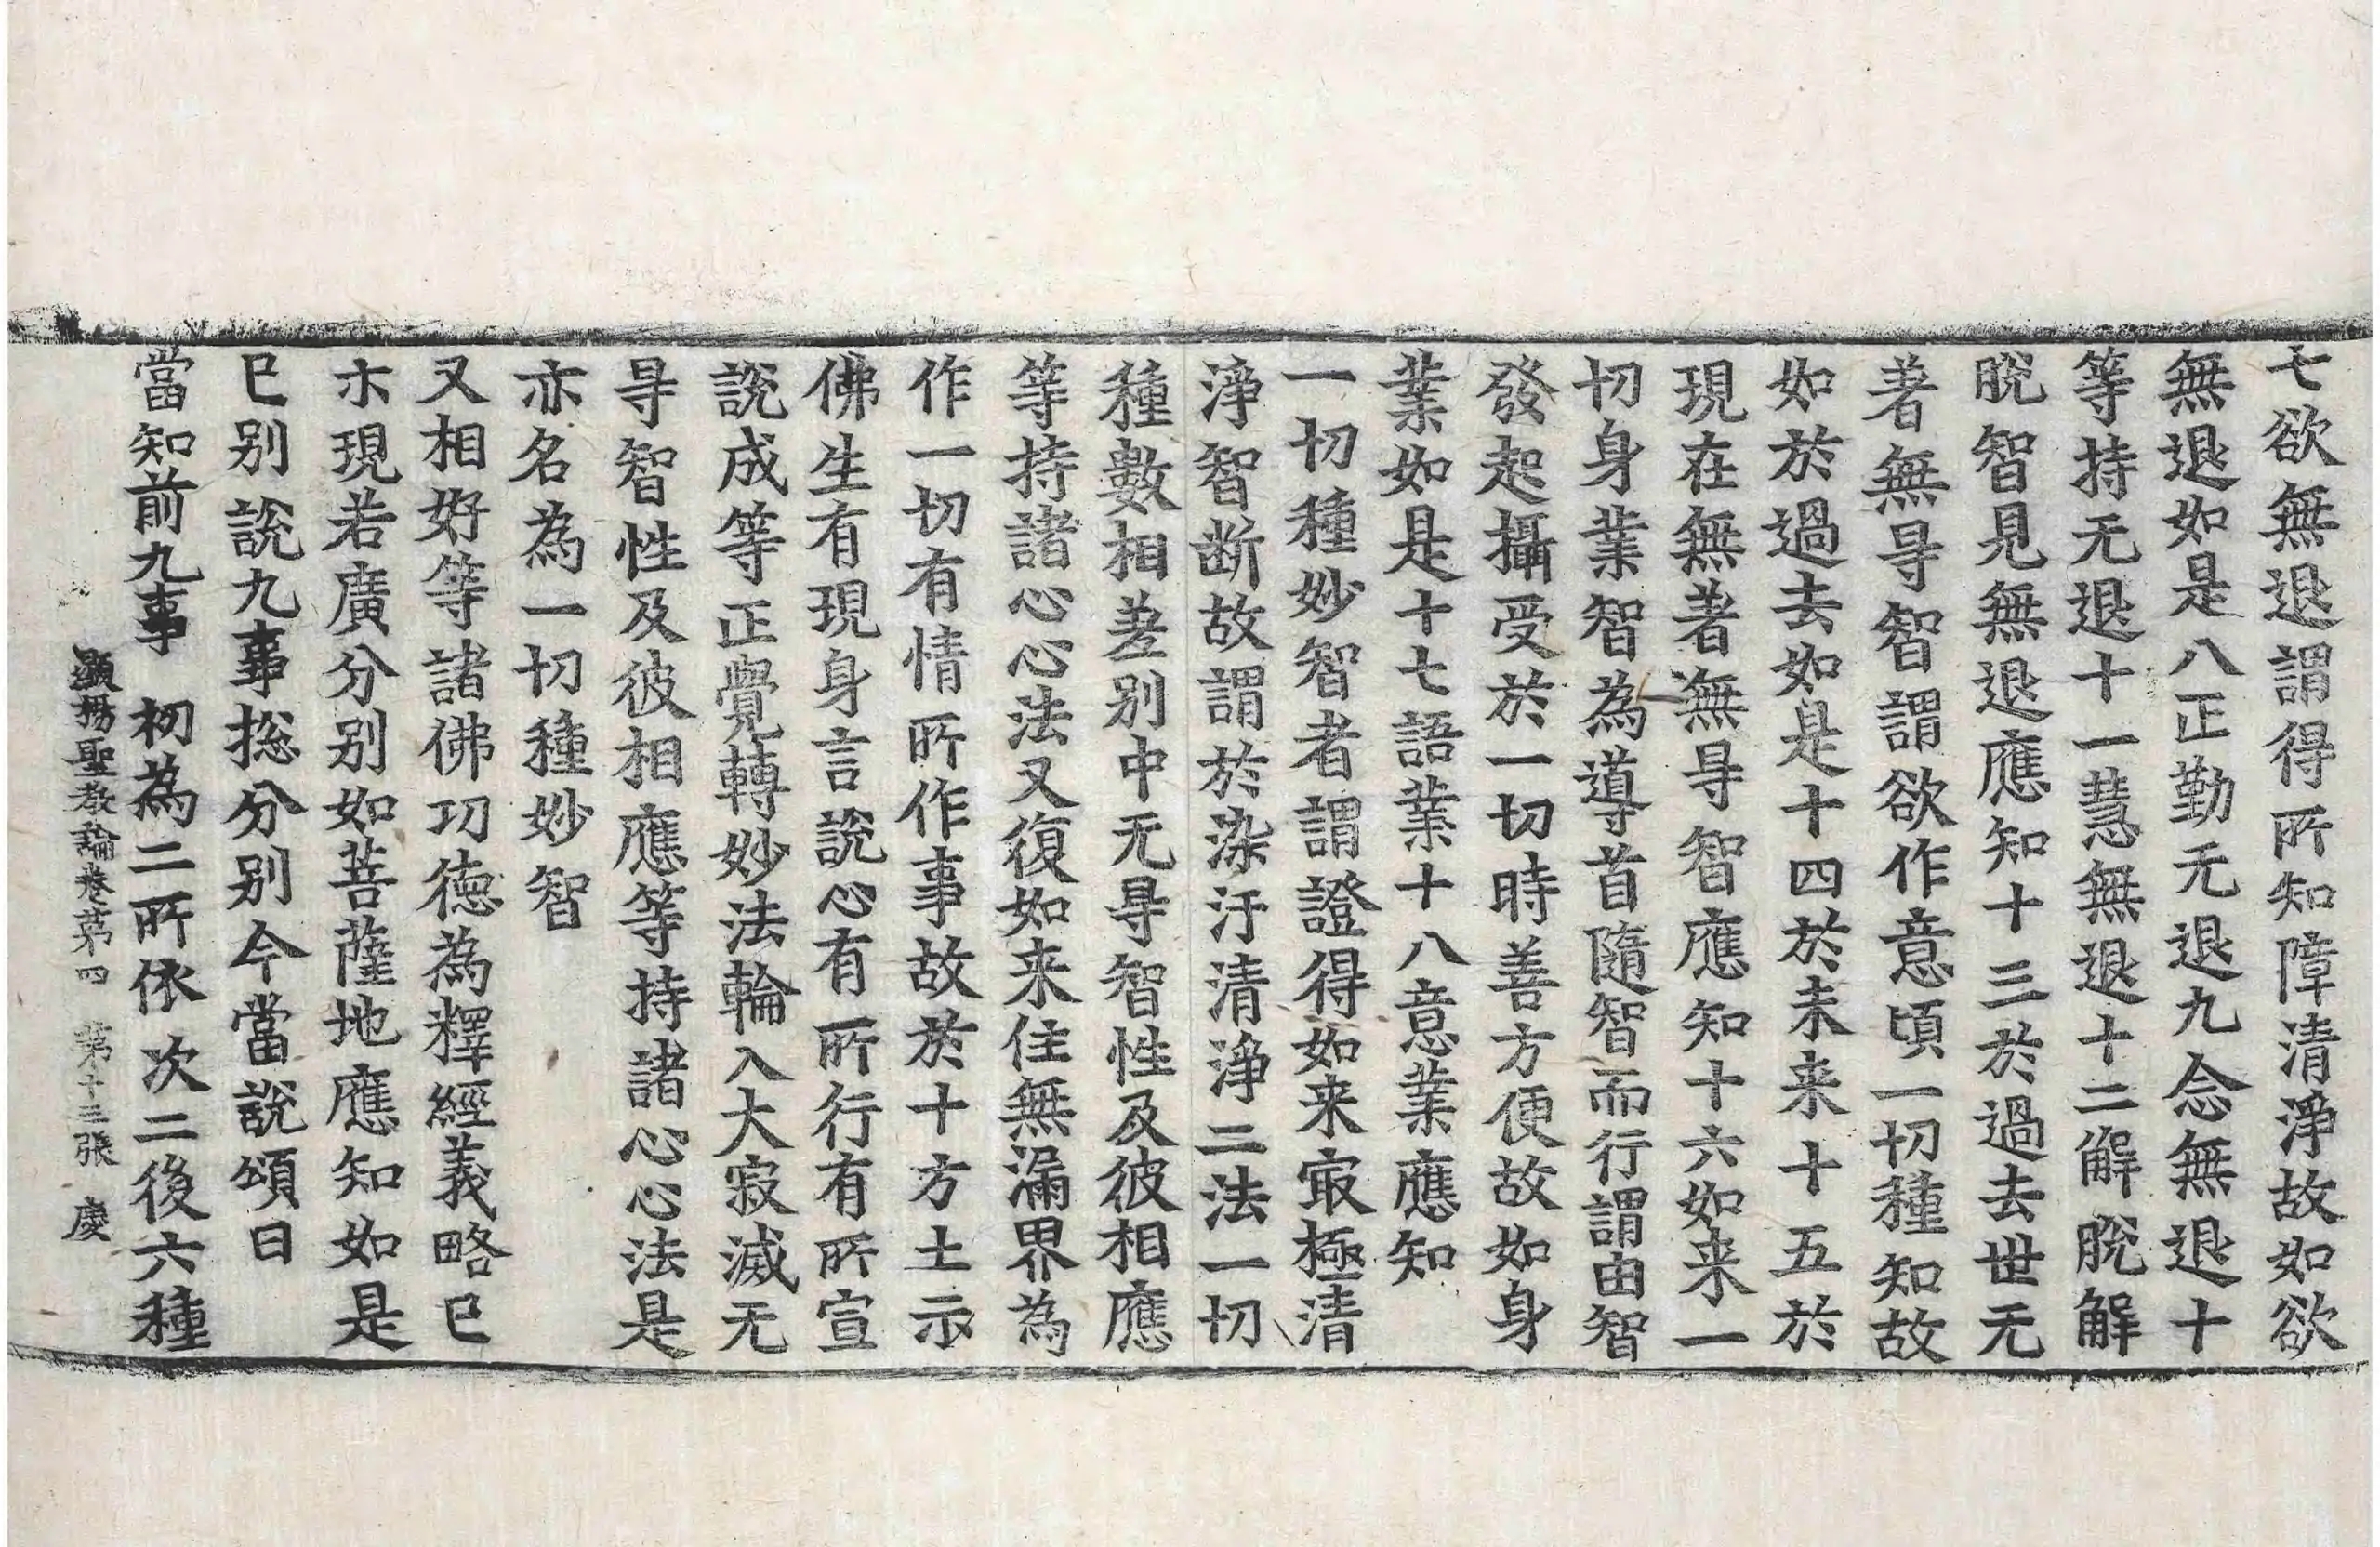 七欲無退謂得所知障清淨故如欲
無退如是八正勤无退九念無退十
等持无退十一慧無退十二解脫解
脫智見無退應知十三於過去世无
著無㝵智謂欲作意頃一切種知故
如於過去如是十四於未来十五於
現在無著無㝵智應知十六如来一
切身業智為導首隨智而行謂由智
發起攝受於一切時善方便故如身
業如是十七語業十八意業應知
一切種妙智者謂證得如来㝡極清
淨智断故謂於染汙清淨二法一切
種數相差别中无㝵智性及彼相應
等持諸心心法又復如来住無漏界為
作一切有情所作事故於十方土示
佛生有現身言說心有所行有所宣
說成等正覺轉妙法輪入大寂滅无
㝵智性及彼相應等持諸心心法是
亦名為一切種妙智
又相好等諸佛功德為釋經義略已
示現若廣分别如菩薩地應知如是
已别說九事捴分别今當說頌曰
當知前九事　初為二所依　次二後六種
顯揚聖教論卷苐四　苐十三張　慶